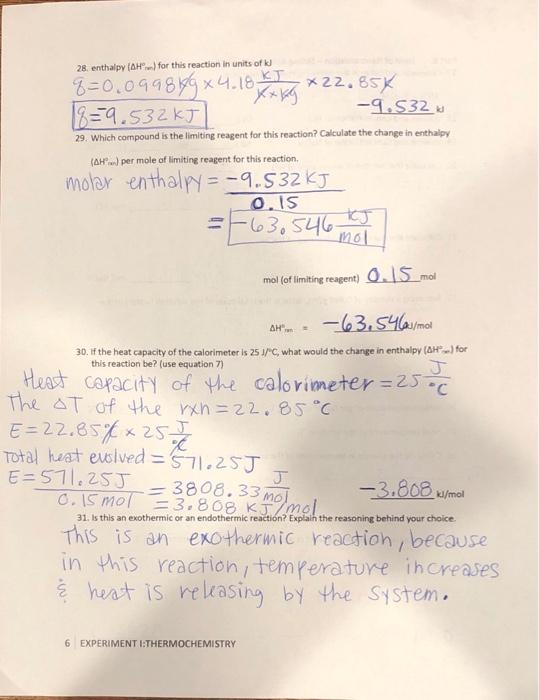 28. enthalpy (ΔH°rxn) for this reaction in units of kJ
q=0.0998kg × 4.18 KJ/K×kg × 22.85K
q=-9.532 KJ
-9.532 kJ
29. Which compound is the limiting reagent for this reaction? Calculate the change in enthalpy
(ΔH°rxn) per mole of limiting reagent for this reaction.
molar enthalpy = -9.532KJ / 0.15
= -63.546 KJ/mol
mol (of limiting reagent) 0.15 mol
ΔH°rxn = -63.546 kJ/mol
30. If the heat capacity of the calorimeter is 25 J/°C, what would the change in enthalpy (ΔH°rxn) for
this reaction be? (use equation 7)
Heat capacity of the calorimeter = 25 J/°C
The ΔT of the rxn = 22.85°C
E = 22.85°C × 25 J/°C
Total heat evolved = 571.25J
E = 571.25J / 0.15 mol = 3808.33 J/mol
= 3.808 KJ/mol
-3.808 kJ/mol
31. Is this an exothermic or an endothermic reaction? Explain the reasoning behind your choice.
This is an exothermic reaction, because
in this reaction, temperature increases
& heat is releasing by the system.
6 EXPERIMENT I:THERMOCHEMISTRY